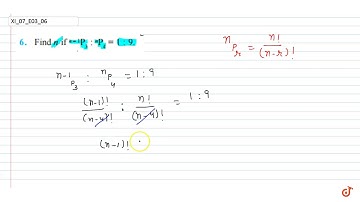 XI_07_E03_06
6. Find n if ⁿ⁻¹P₃ : ⁿP₄ = 1 : 9.
ⁿPᵣ = n! / (n-r)!
ⁿ⁻¹P₃ : ⁿP₄ = 1 : 9
(n-1)! / (n-4)! : n! / (n-4)! = 1 : 9
(n-1)!